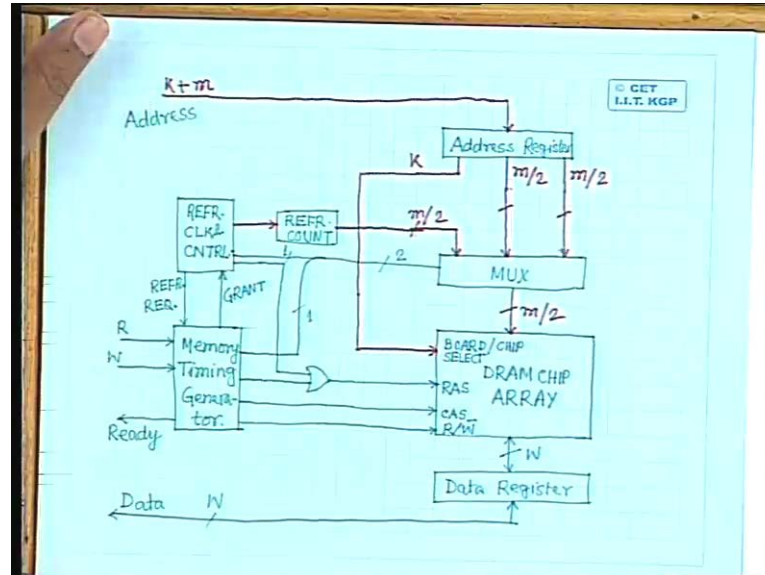 K+m
Address
© CET
I.I.T. KGP
Address Register
K
m/2
m/2
REFR.
CLK &
CNTRL
REFR.
COUNT
m/2
1
2
MUX
REFR.
REQ.
GRANT
1
m/2
R
W
Memory
Timing
Genera-
tor.
BOARD/CHIP
SELECT
DRAM CHIP
ARRAY
RAS
CAS
R/W̅
Ready
W
Data Register
Data W